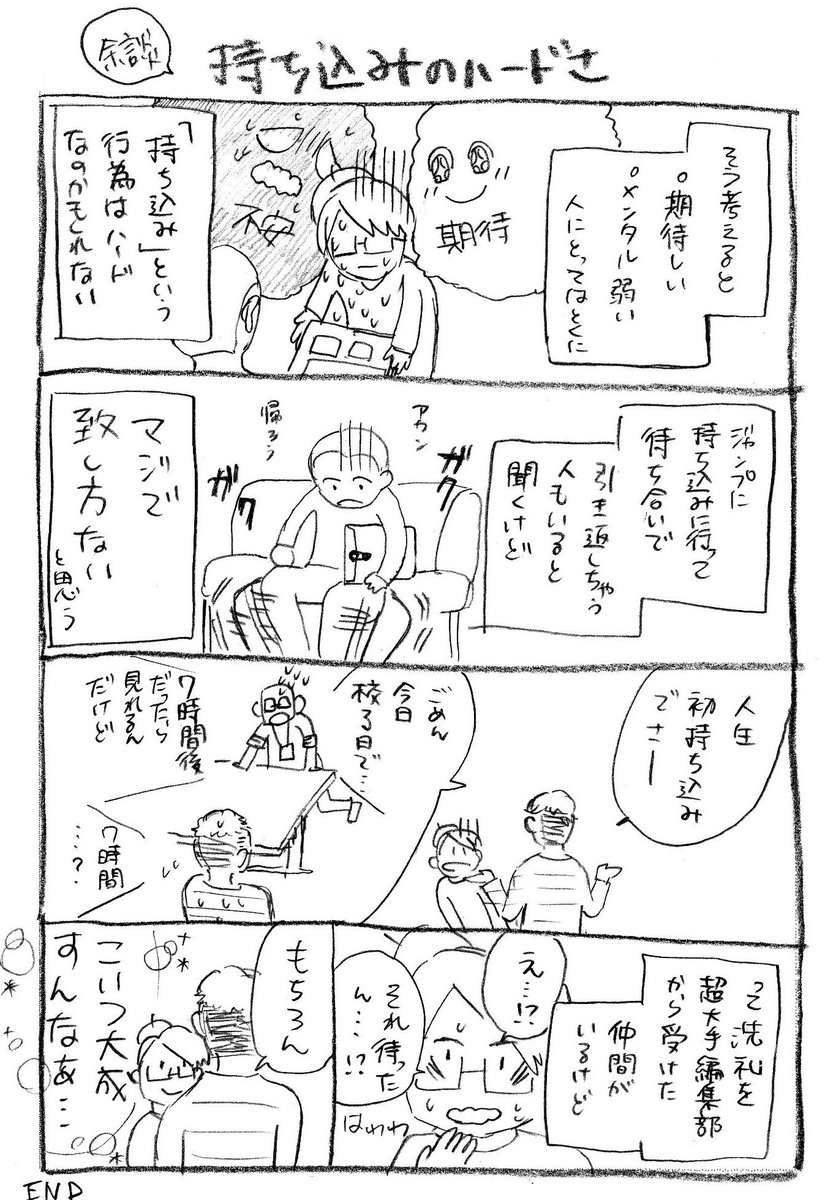 余談
持ち込みのハードさ
そう考えると
。期待しい
。メンタル弱い
人にとってはとくに
期待
不安
「持ち込み」という
行為はハード
なのかもしれない
ジャンプに
持ち込みに行って
待ち合いで
引き返しちゃう
人もいると
聞くけど
アカン
帰ろう
ガク
ガク
マジで
致し方ない
と思う
人生
初持ち込み
でさー
ごめん
今日
校了日で…
7時間後
だったら
見れるん
だけど
7時間
…?
って洗礼を
超大手編集部
から受けた
仲間が
いるけど
え…!?
それ待った
ん…!?
はわわ
もちろん
こいつ大成
すんなぁ…
END